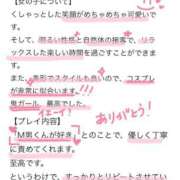 【女の子について】
くしゃっとした笑顔がめちゃめちゃ可愛いで
す。
そして、明るい性格と自然体の接客で、リラ
ックスした楽しい時間を過ごすことができま
す。
また、美形でスタイルも良いので、コスプレ
が非常に似合います。
鬼ガール、最高でした。
イエーイ!
ありがとう!
【プレイ内容】
「M男くんが好き」とのことで、優しく丁寧
に責めてくれます。
至高です。
というわけで、すっかりとリピートさせてい